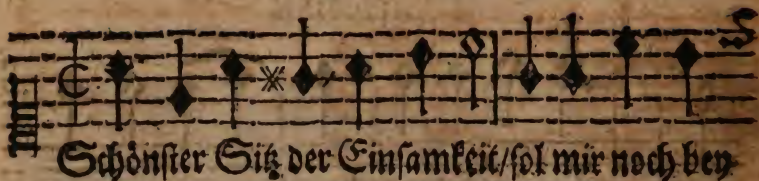 Schönster Sitz der Einsamkeit/sol mir noch bey